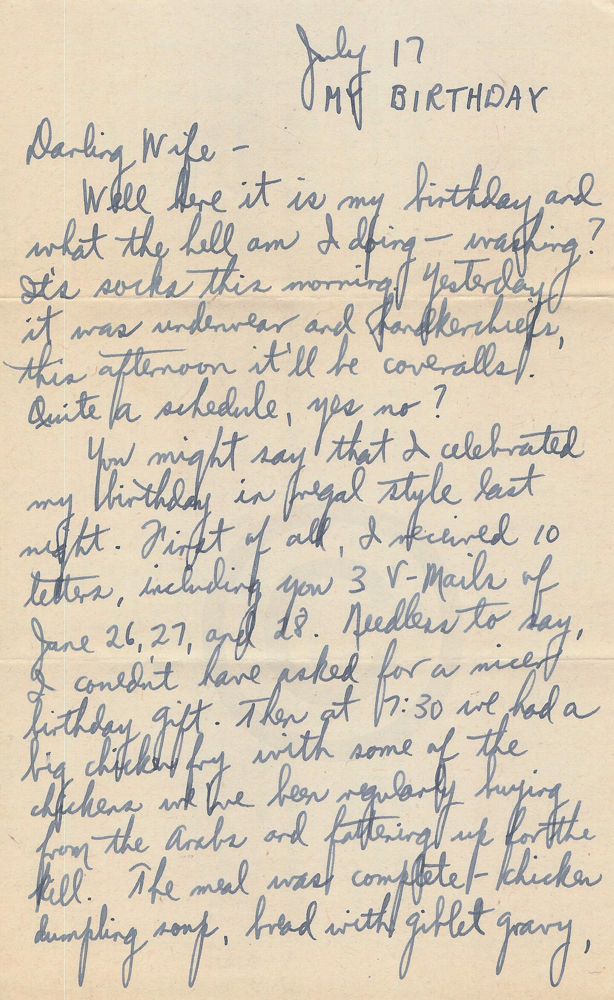 July 17
MY BIRTHDAY
Darling Wife -
Well here it is my birthday and
what the hell am I doing - washing?
It's socks this morning. Yesterday
it was underwear and handkerchiefs,
this afternoon it'll be coveralls.
Quite a schedule, yes no?
You might say that I celebrated
my birthday in regal style last
night. First of all, I received 10
letters, including you 3 V-Mails of
June 26, 27, and 28. Needless to say,
I couldn't have asked for a nicer
birthday gift. Then at 7:30 we had a
big chicken fry with some of the
chickens we've been regularly buying
from the Arabs and fattening up for the
kill. The meal was complete - chicken
dumpling soup, bread with giblet gravy,